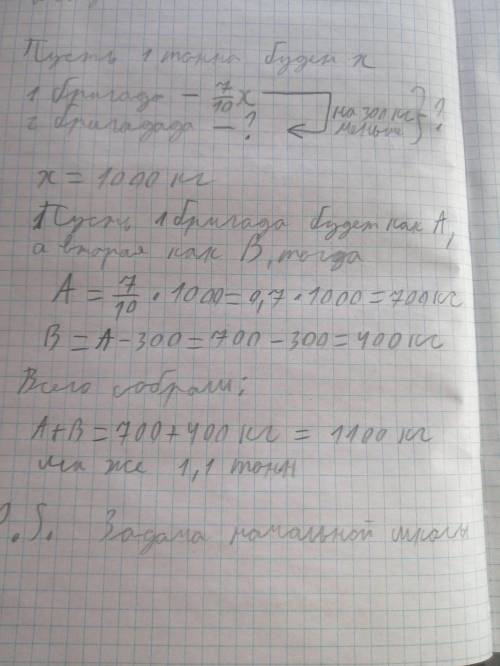 Пусть 1 тонна будет x
1 бригада — 7/10 x
на 300 кг меньше } ?
2 бригадада — ?
x = 1000 кг
Пусть 1 бригада будет как A,
а вторая как B, тогда
A = 7/10 · 1000 = 0,7 · 1000 = 700 кг
B = A − 300 = 700 − 300 = 400 кг
Всего собрали:
A + B = 700 + 400 кг = 1100 кг
или же 1,1 тонн
P.S. Задача начальной школы